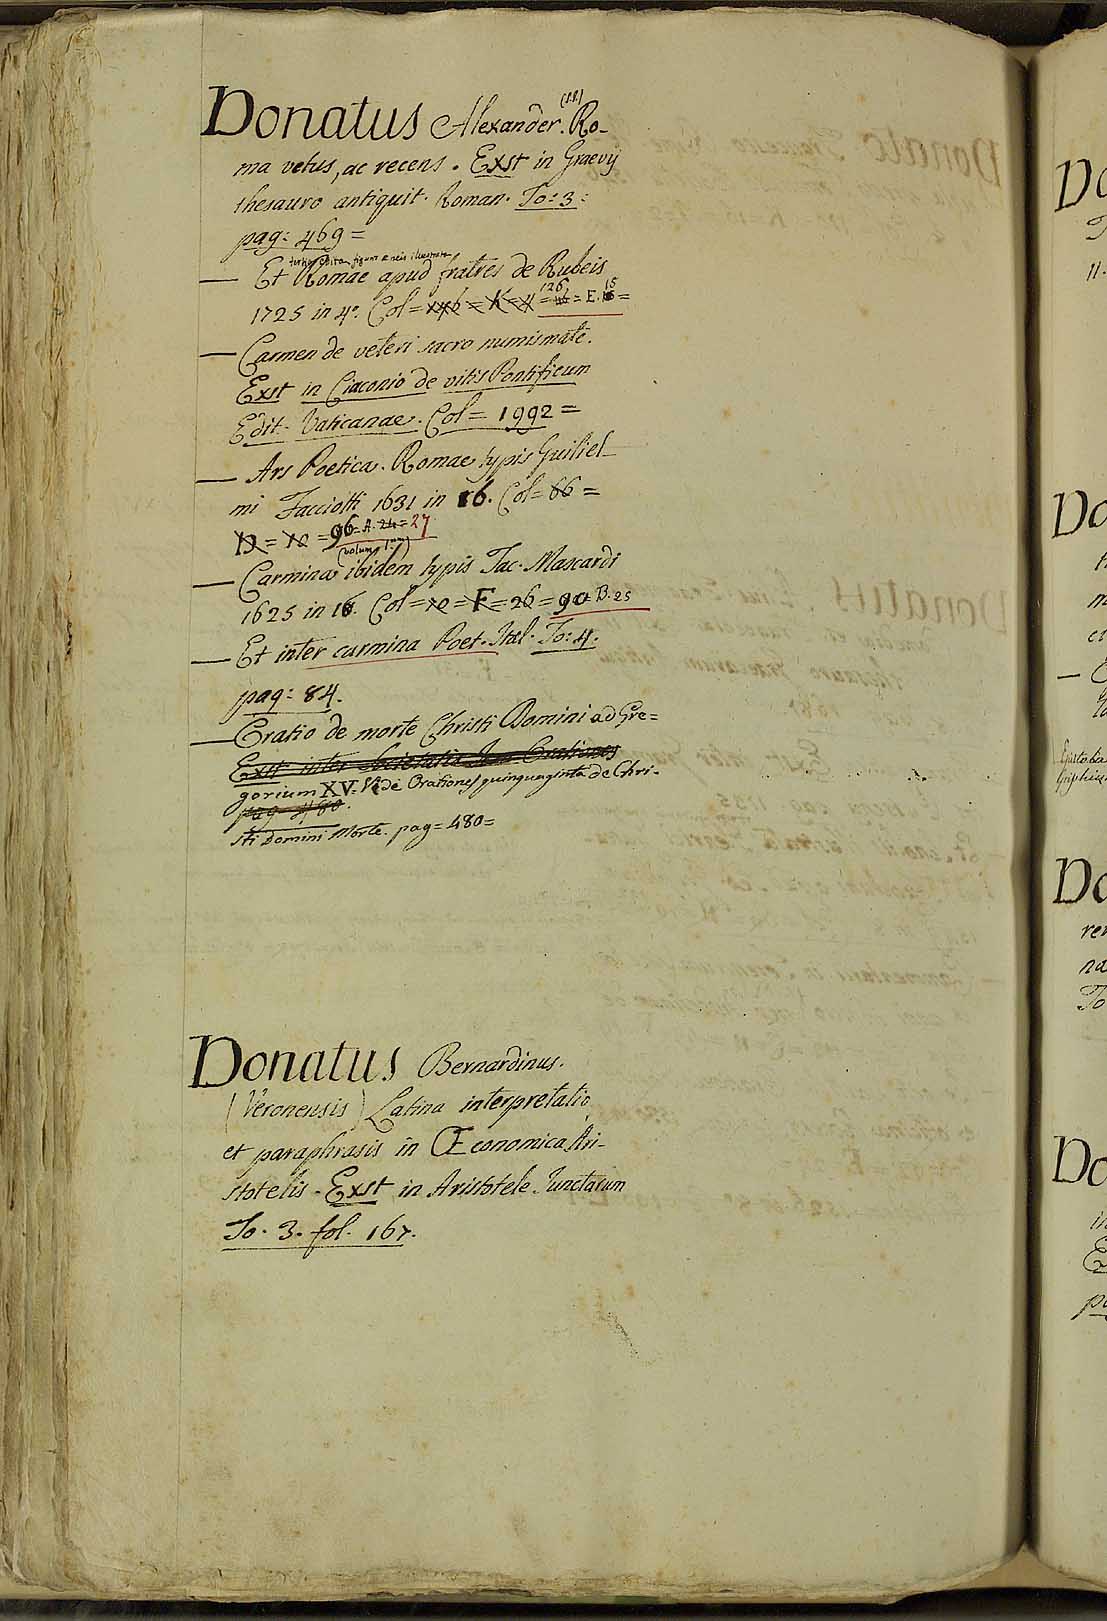 Donatus Alexander. Ro-
ma vetus, ac recens. Exst in Graevij
thesauro antiquit. Roman. To: 3:
pag: 469 =
— Et Romae apud fratres de Rubeis
1725 in 4°. Col = 126 = E. 15 =
— Carmen de veteri sacro numismate.
Exst in Ciaconio de vitis Pontificum
Edit. Vaticanae. Col = 1992 =
— Ars Poetica. Romae typis Guiliel-
mi Facciotti 1631 in 16. Col = 66 =
= 10 = 96 = A. 24 = 27
(volum. 1.um)
— Carmina ibidem typis Jac. Mascardi
1625 in 16. Col = 10 = F = 26 = 90 = B. 25
— Et inter carmina Poet. Ital. To: 4.
pag: 84.
— Oratio de morte Christi Domini ad Gre=
Exst inter Societatis Jesu Orationes
gorium XV. Vide Orationes quinquaginta de Chri-
pag. 480.
sti Domini Morte. pag = 480 =
Donatus Bernardinus.
(Veronensis) Latina interpretatio
et paraphrasis in Œconomica Ari-
stotelis. Exst in Aristotele Junctarum
To. 3. fol. 167.